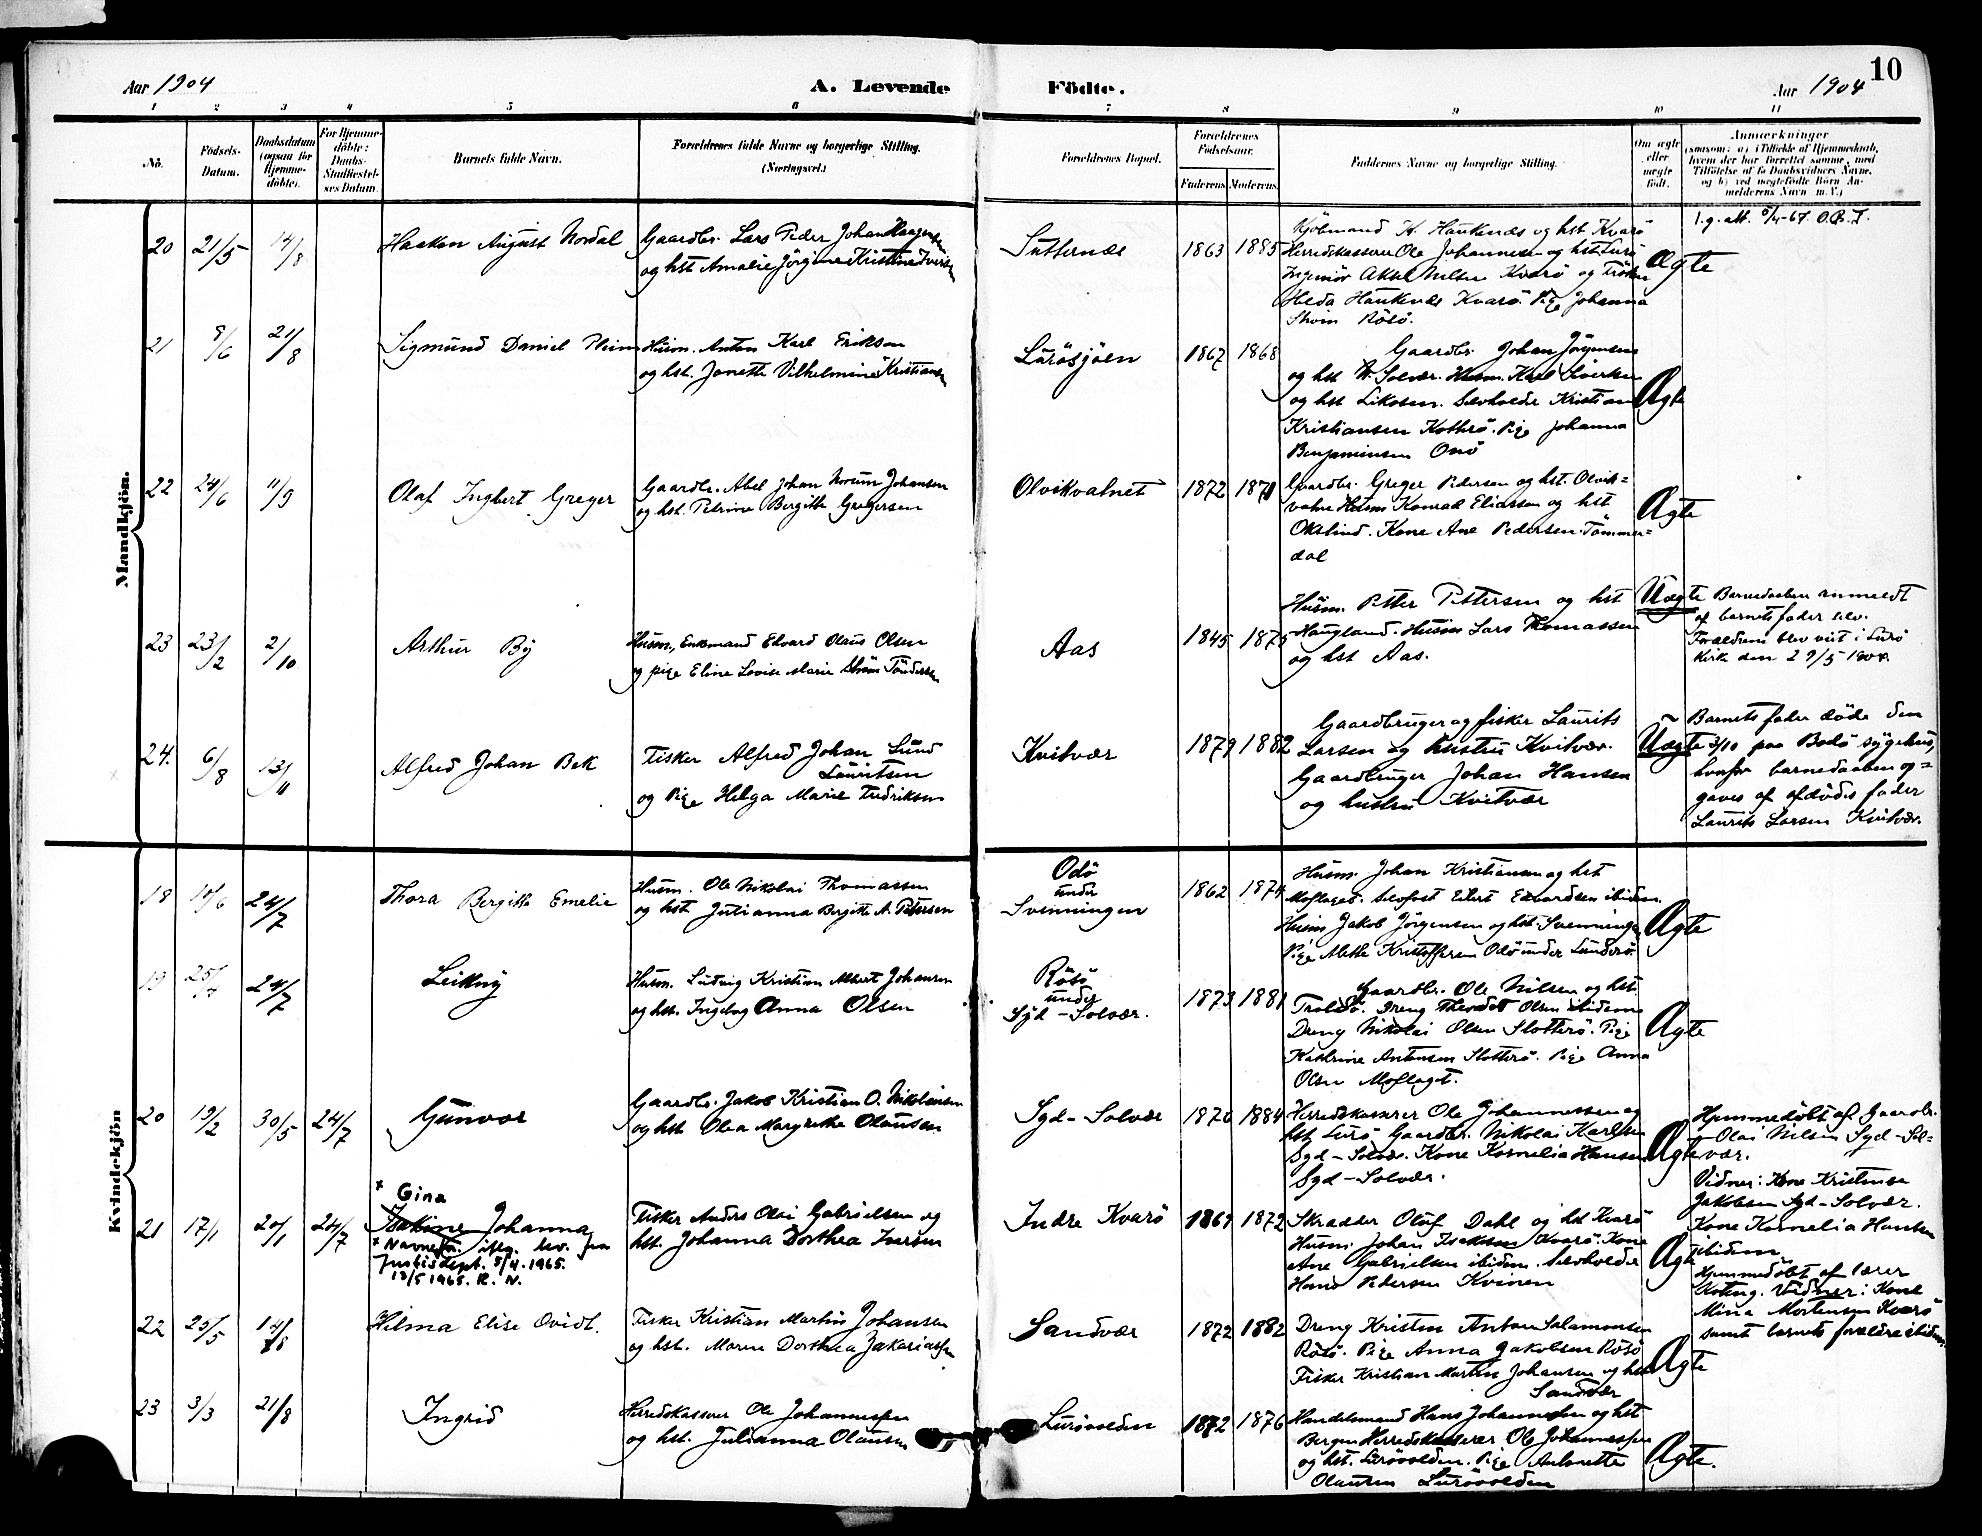 Aar 1904
A. Levende
Födte.
Aar 1904
10
1 2 3 4 5 6 7 8 9 10 11
No.
Födsels-
Datum.
Daabsdatum
(ogsaa for
Hjemme-
döbte).
For Hjemme-
döbte:
Daabs-
Stadfæstel-
ses Datum.
Barnets fulde Navn.
Forældrenes fulde Navne og borgerlige Stilling.
(Næringsvei.)
Forældrenes Bopæl.
Forældrenes
Födselsaar.
Faderens. Moderens.
Faddernes Navne og borgerlige Stilling.
Om ægte
eller
uægte
födt.
Anmærkninger
(saasom: a) i Tilfælde af Hjemmedaab,
hvem der har forrettet samme, med
Tilföielse af to Daabsvidners Navne,
og b) ved uægtefödte Börn An-
melderens Navn m. V.)
Mandkjön.
20 21/5 14/8
Haakon August Nordal
Gaardbr. Lars Peder Johan Haagensen
og hst Amalie Jörgine Kristine Iversen
1863 1885
Kjöbmand H. Haukenæs og hst Kvarö
Herredskasserer Ole Johannesen og hst Lurö
Ingeniör Aksel Nilsen Kvarö og Fröken
Heda Haukenæs Kvarö. Pige Johanna
Strøm Rösö.
Ægte
21 8/6 21/8
Sigmund Daniel Thim
Husm. Anton Karl Erikson
og hst. Jonette Vilhelmine Kristiansen
Lurösjöen
1867 1868
Gaardbr. Johan Jörgensen
og hst N. Solvær. Husm. Karl Sivertsen
og hst Liksøen. Selvholdt Kristian
Kristiansen Kothsö. Pige Johanna
Benjaminsen Onö
Ægte
22 24/6 11/9
Olaf Ingbert Greger
Gaardbr. Abel Johan Norum Johansen
og hst. Petrine Bergitte Gregersen
Olvikvatnet
1872 1871
Gaardbr. Greger Pedersen og hst. Olvik-
vatne Husm Konrad Eliassen og hst
Okstind. Kone Ane Pedersen Tömmer-
dal
Ægte
23 23/2 2/10
Arthur By
Husm, Enkemand Edvard Olaus Olsen
og pige Eline Lovise Marie Ström Töndersen
Aas
1845 1875
Husm. Petter Pettersen og hst
Haugland. Husm Lars Thomassen
og hst Aas.
Uægte
Barnedaaben anmeldt
af barnets fader selv.
Forældrene blev viet i Lurö
Kirke den 29/5 1904.
24. 6/8 13/11
Alfred Johan Bek
Fisker Alfred Johan Lund
Lauritsen
og Pige Helga Marie Fredriksen
Kvitvær
1879 1882
Gaardbruger og fisker Laurits
Larsen og hustru Kvitvær.
Gaardbruger Johan Hansen
og hustru Kvitvær
Uægte
Barnets fader döde den
3/10 paa Bodö sygehus,
hvorfor barnedaaben op-
gaves af afdödes fader
Laurits Larsen Kvitvær.
Kvindekjön
18 10/6 24/7
Thora Bergitte Emelie
Husm. Ole Nikolai Thomassen
og hst Julianna Bergitte A. Petersen
Odö
under
Svenningen
1862 1874
Husm Johan Kristiansen og hst
Moflaget. Selvfost Edert Edvardsen ibidem.
Husm Jakob Jörgensen og hst. Svenningen
Pige Mette Kristoffersen Odö under Lunderö.
Ægte
19 24/7
Leikny
Husm. Ludvig Kristian Albert Johansen
og hst. Ingebog Anna Olsen
Rösö
under
Syd-Solvær.
1873 1881
Gaardbr. Ole Nilsen og hst.
Troldsö. Dreng Theodor Olsen ibidem
Dreng Nikolai Olsen Slotterö. Pige
Kathrine Antonsen Slotterö. Pige Anna
Olsen Moflaget.
Ægte
20 19/2 30/5 24/7
Gunvor
Gaardbr. Jakob Kristian O. Nikolaisen
og hst Olea Margrethe Olausen
Syd-Solvær
1870 1884
Herredskasserer Ole Johannessen og
hst Lurö Gaardbr. Nikolai Karlsen
Syd-Solvær. Kone Kornelia Hansen
Syd-Solvær.
Ægte
Hjemmedöbt af Gaardbr.
Olai Nilsen Syd-Sol-
vær.
Vidner: Kone Kristine
Jakobsen Syd-Solvær.
Kone Kornelia Hansen
ibidem.
21 17/1 20/1 24/7
x Gina
Isakine Johanna
x Navnefor. iflg. bev. fra
Justisdept. 5/4.1965.
13/5 1965. R. N.
Fisker Anders Olai Gabrielsen og
hst. Johanna Dorthea Iversen
Indre Kvarö
1869 1872
Skrædder Oluf Dahl og hst Kvarö
Husm. Johan Isaksen Kvarö. Kone
Ane Gabrielsen ibidem. Selvholdt
Hans Pedersen Kvinen
Ægte
Hjemmedöbt af Lærer
Vidner: Kone
Mina Mortensen Kvarö
samt barnets forældre ibidem
22 25/5 14/8
Hilma Elise Ovidt.
Fisker Kristian Martin Johansen
og hst. Maren Dorthea Zakariassen
Sandvær
1872 1882
Dreng Kristen Antone Salamonsen
Rösö. Pige Anna Jakobsen Rösö
Fisker Kristian Martin Johansen og hst
Sandvær
Ægte
23 3/3 21/8
Ingrid
Herredskasserer Ole Johannessen
og hst. Julianna Olausen
Lurövolden
1872 1876
Handelsmand Hans Johannessen og hst
Bergen Herredskasserer Ole Johannessen
og hst. Lurövolden. Pige Antonette
Olausen Lurövolden
Ægte.